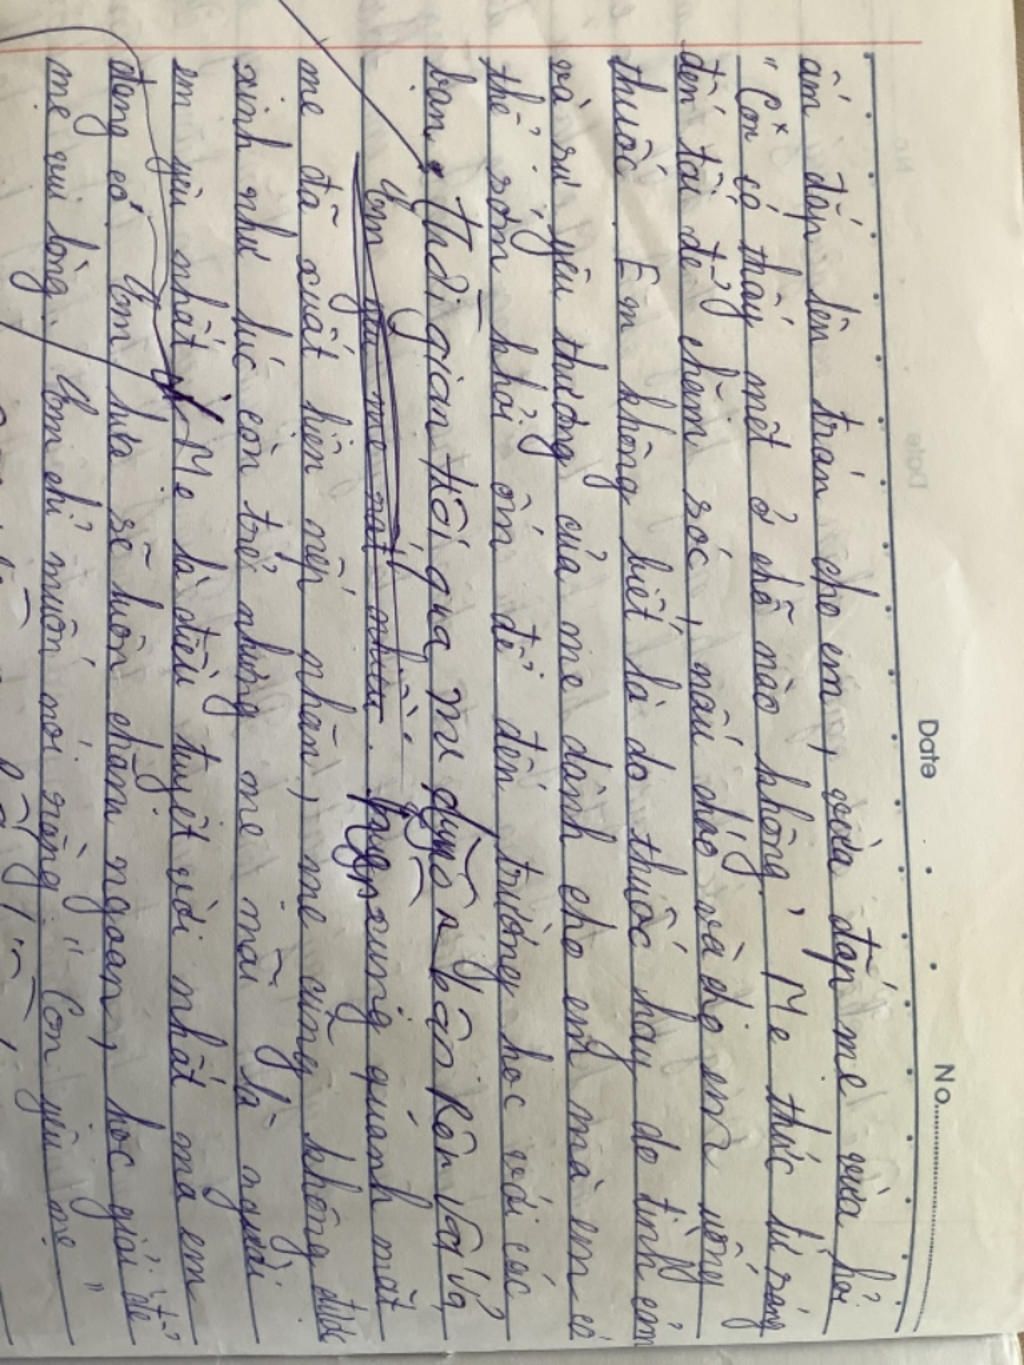 Date
No.
ấm đắp lên trán cho em, vừa đắp mẹ vừa hỏi
" Con có thấy mệt ở chỗ nào không". Mẹ thức từ sáng
đến tối để chăm sóc, nấu cháo và cho em uống
thuốc. Em không biết là do thuốc hay do tình cảm
và sự yêu thương của mẹ dành cho em mà em có
thể sớm khỏi ốm để đến trường học với các
bạn. Thời gian trôi qua, mẹ vất vả
Em yêu mẹ rất nhiều. xung quanh mắt
mẹ đã xuất hiện nếp nhăn, mẹ cũng không được
xinh như lúc còn trẻ nhưng mẹ mãi là người
em yêu nhất. Mẹ là điều tuyệt vời nhất mà em
đang có. Em hứa sẽ luôn chăm ngoan, học giỏi để
mẹ vui lòng. Em chỉ muốn nói rằng " Con yêu mẹ "